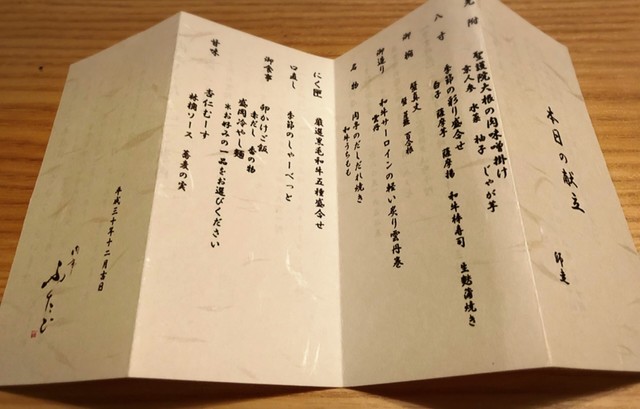 本日の献立
師走
先附
聖護院大根の肉味噌掛け
京人参 水菜 柚子 じゃが芋
八寸
季節の彩り盛合せ
柚子 薩摩芋 薩摩揚 和牛棒寿司 生麩蒲焼き
御椀
蟹真丈
蟹 百合根
御造り
和牛サーロインの軽い炙り雲丹巻
雲丹
名物
肉亭のだしだれ焼き
和牛うちもも
にく匣
厳選黒毛和牛五種盛合せ
口直し
季節のしゃーべっと
御食事
卵かけご飯
赤だし 香の物
盛岡冷やし麺
※お好みの一品をお選びください
甘味
杏仁むーす
林檎ソース 蕎麦の実
平成三十年十二月吉日
肉亭
ふたご